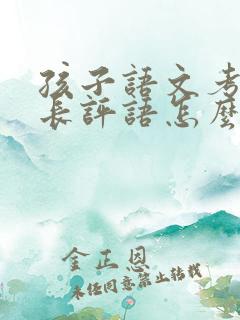 孩子語文考
長評語怎麼
金正恩
未經同意禁止轉載